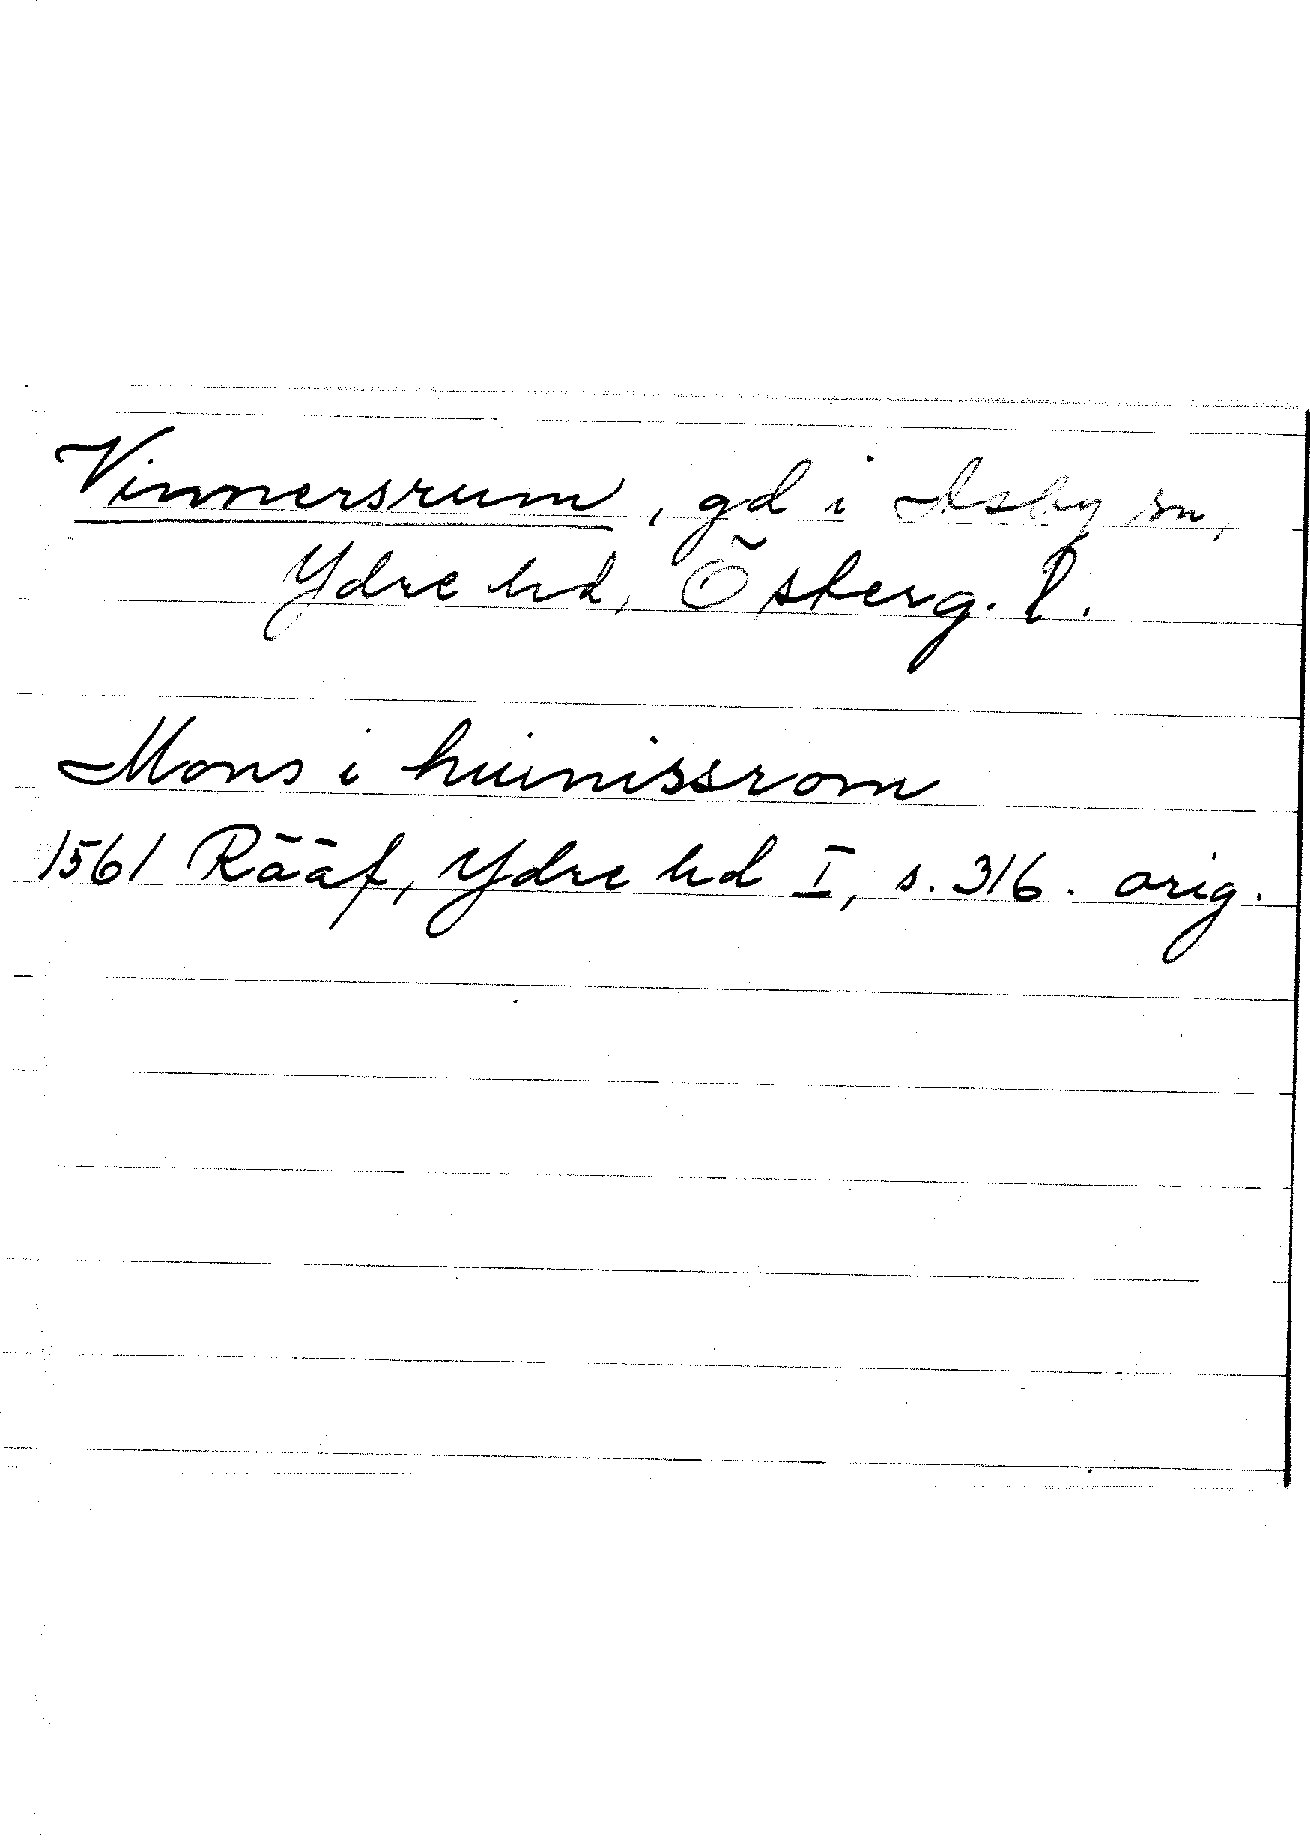 Vinnersrum, gd i Asby sn,
Ydre hd, Österg. l.
Mons i huinissrom
1561 Rääf, Ydre hd I, s. 316. orig.